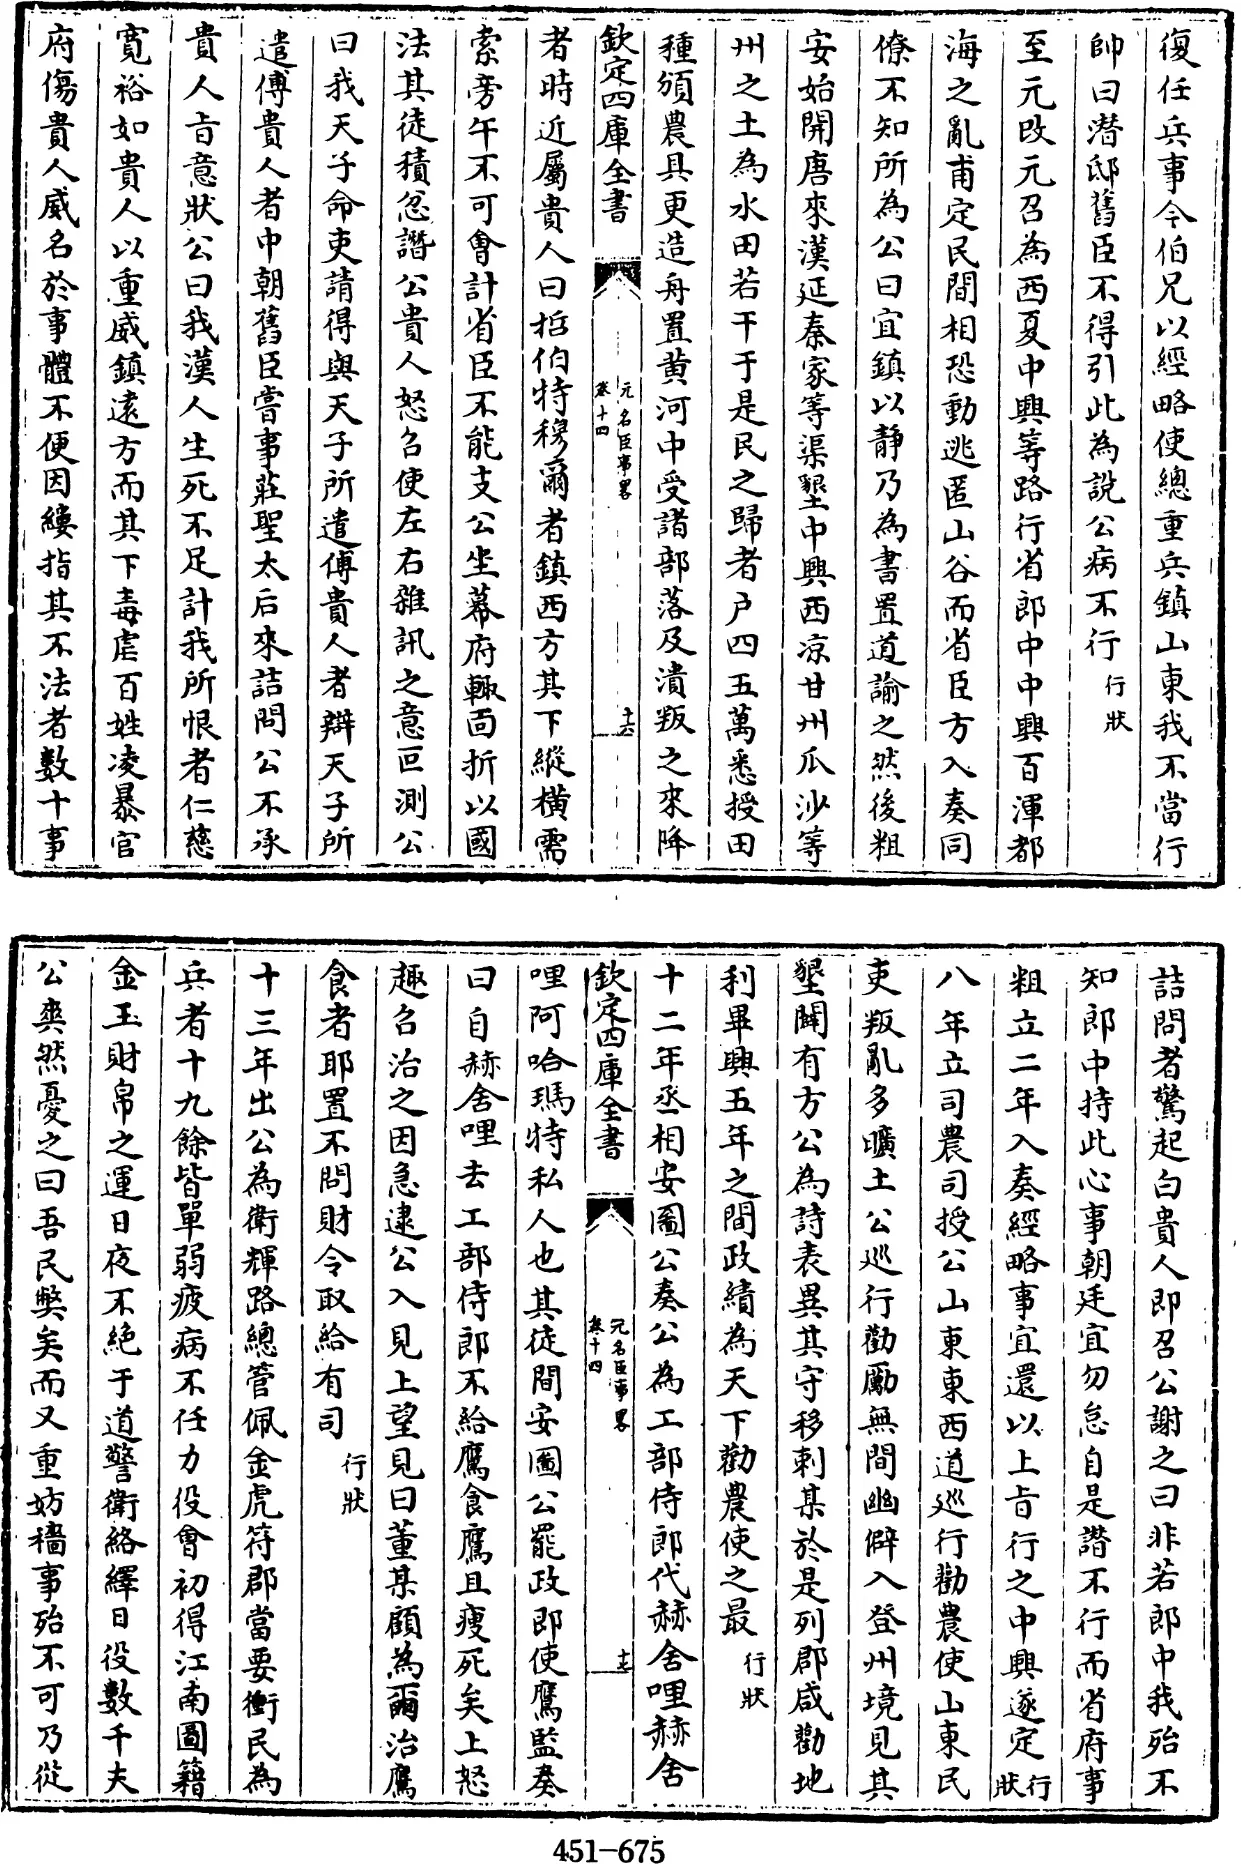 復任兵事令伯兄以經略使總重兵鎮山東我不當行
帥曰潛邸舊臣不得引此為說公病不行行狀
至元改元召為西夏中興等路行省郎中中興百渾都
海之亂甫定民間相恐動逃匿山谷而省臣方入奏同
僚不知所為公曰宜鎮以靜乃為書置道諭之然後粗
安始開唐來漢延秦家等渠墾中興西凉甘州瓜沙等
州之土為水田若干于是民之歸者户四五萬悉授田
種頒農具更造舟置黄河中受諸部落及潰叛之來降
欽定四庫全書
元名臣事畧
卷十四
十六
者時近屬貴人曰招伯特穆爾者鎮西方其下縱横需
索旁午不可會計省臣不能支公坐幕府輒面折以國
法其徒積忿譖公貴人怒召使左右雜訊之意叵測公
曰我天子命吏請得與天子所遣傅貴人者辯天子所
遣傅貴人者中朝舊臣嘗事莊聖太后來詰問公不承
貴人旨意狀公曰我漢人生死不足計我所恨者仁慈
寛裕如貴人以重威鎮逺方而其下毒虐百姓凌暴官
府傷貴人威名於事體不便因縷指其不法者數十事
詰問者驚起白貴人即召公謝之曰非若郎中我殆不
知郎中持此心事朝廷宜勿怠自是譖不行而省府事
粗立二年入奏經略事宜還以上旨行之中興遂定行狀
八年立司農司授公山東東西道巡行勸農使山東民
吏叛亂多曠土公巡行勸勵無間幽僻入登州境見其
墾闢有方公為詩表異其守移剌某於是列郡咸勸地
利畢興五年之間政績為天下勸農使之最行狀
十二年丞相安圖公奏公為工部侍郎代赫舍哩赫舍
欽定四庫全書
元名臣事畧
卷十四
十七
哩阿哈瑪特私人也其徒間安圖公罷政即使鷹監奏
曰自赫舍哩去工部侍郎不給鷹食鷹且瘦死矣上怒
趣召治之因急逮公入見上望見曰董某顧為爾治鷹
食者耶置不問財令取給有司行狀
十三年出公為衛輝路總管佩金虎符郡當要衝民為
兵者十九餘皆單弱疲病不任力役會初得江南圖籍
金玉財帛之運日夜不絶于道警衛絡繹日役數千夫
公爽然憂之曰吾民弊矣而又重妨穡事殆不可乃從
451-675